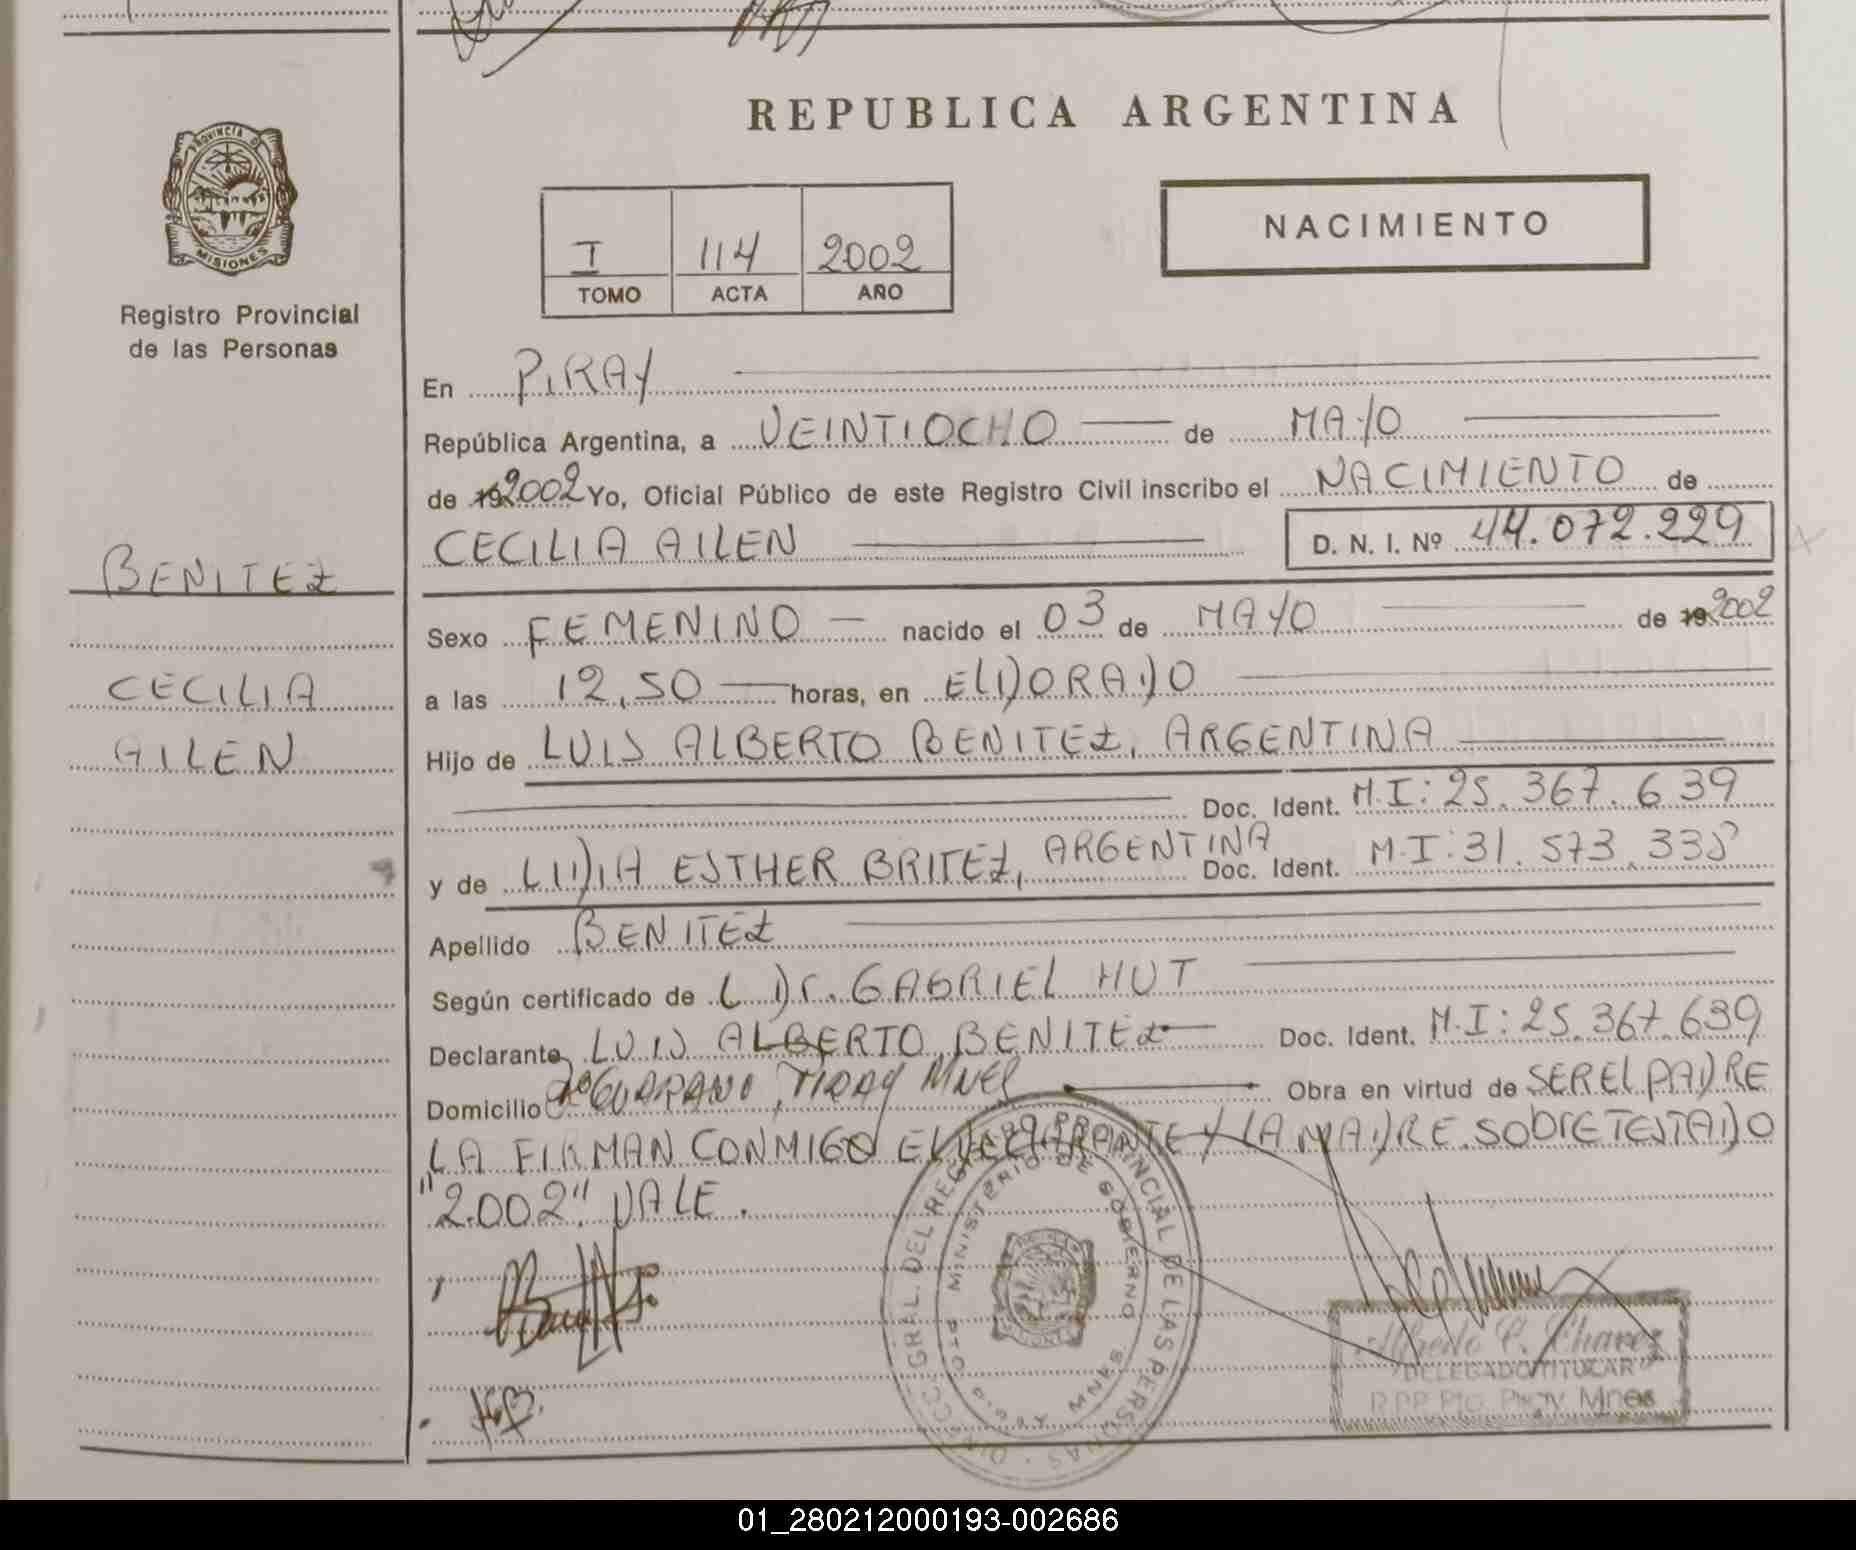 REPUBLICA ARGENTINA
PROVINCIA DE
MISIONES
Registro Provincial
de las Personas
NACIMIENTO
I 114 2002
TOMO ACTA AÑO
En PIRAY
República Argentina, a VEINTIOCHO de MAYO
de 192002 Yo, Oficial Público de este Registro Civil inscribo el NACIMIENTO de
CECILIA AILEN D. N. I. Nº 44.072.229
BENITEZ
Sexo FEMENINO nacido el 03 de MAYO de 192002
CECILIA
a las 12,50 horas, en ELDORADO
AILEN
Hijo de LUIS ALBERTO BENITEZ, ARGENTINA
Doc. Ident. M.I: 25.367.639
y de LIDIA ESTHER BRITEZ, ARGENTINA Doc. Ident. M.I: 31.573.33
Apellido BENITEZ
Según certificado de L Dr. GABRIEL HUT
Declarante LUIS ALBERTO BENITEZ Doc. Ident. M.I: 25.367.639
Domicilio Bº GUARANI, PIRAY MNES Obra en virtud de SER EL PADRE
LA FIRMAN CONMIGO EL DECLARANTE Y LA MADRE. SOBRETESTADO
"2.002" VALE.
DIRECC. GRAL. DEL REGISTRO PROVINCIAL DE LAS PERSONAS
MINISTERIO DE GOBIERNO
PTO. PIRAY MNES
Alfredo C. Chavez
DELEGADO TITULAR
R.P.P. Pto. Piray Mnes
01_280212000193-002686